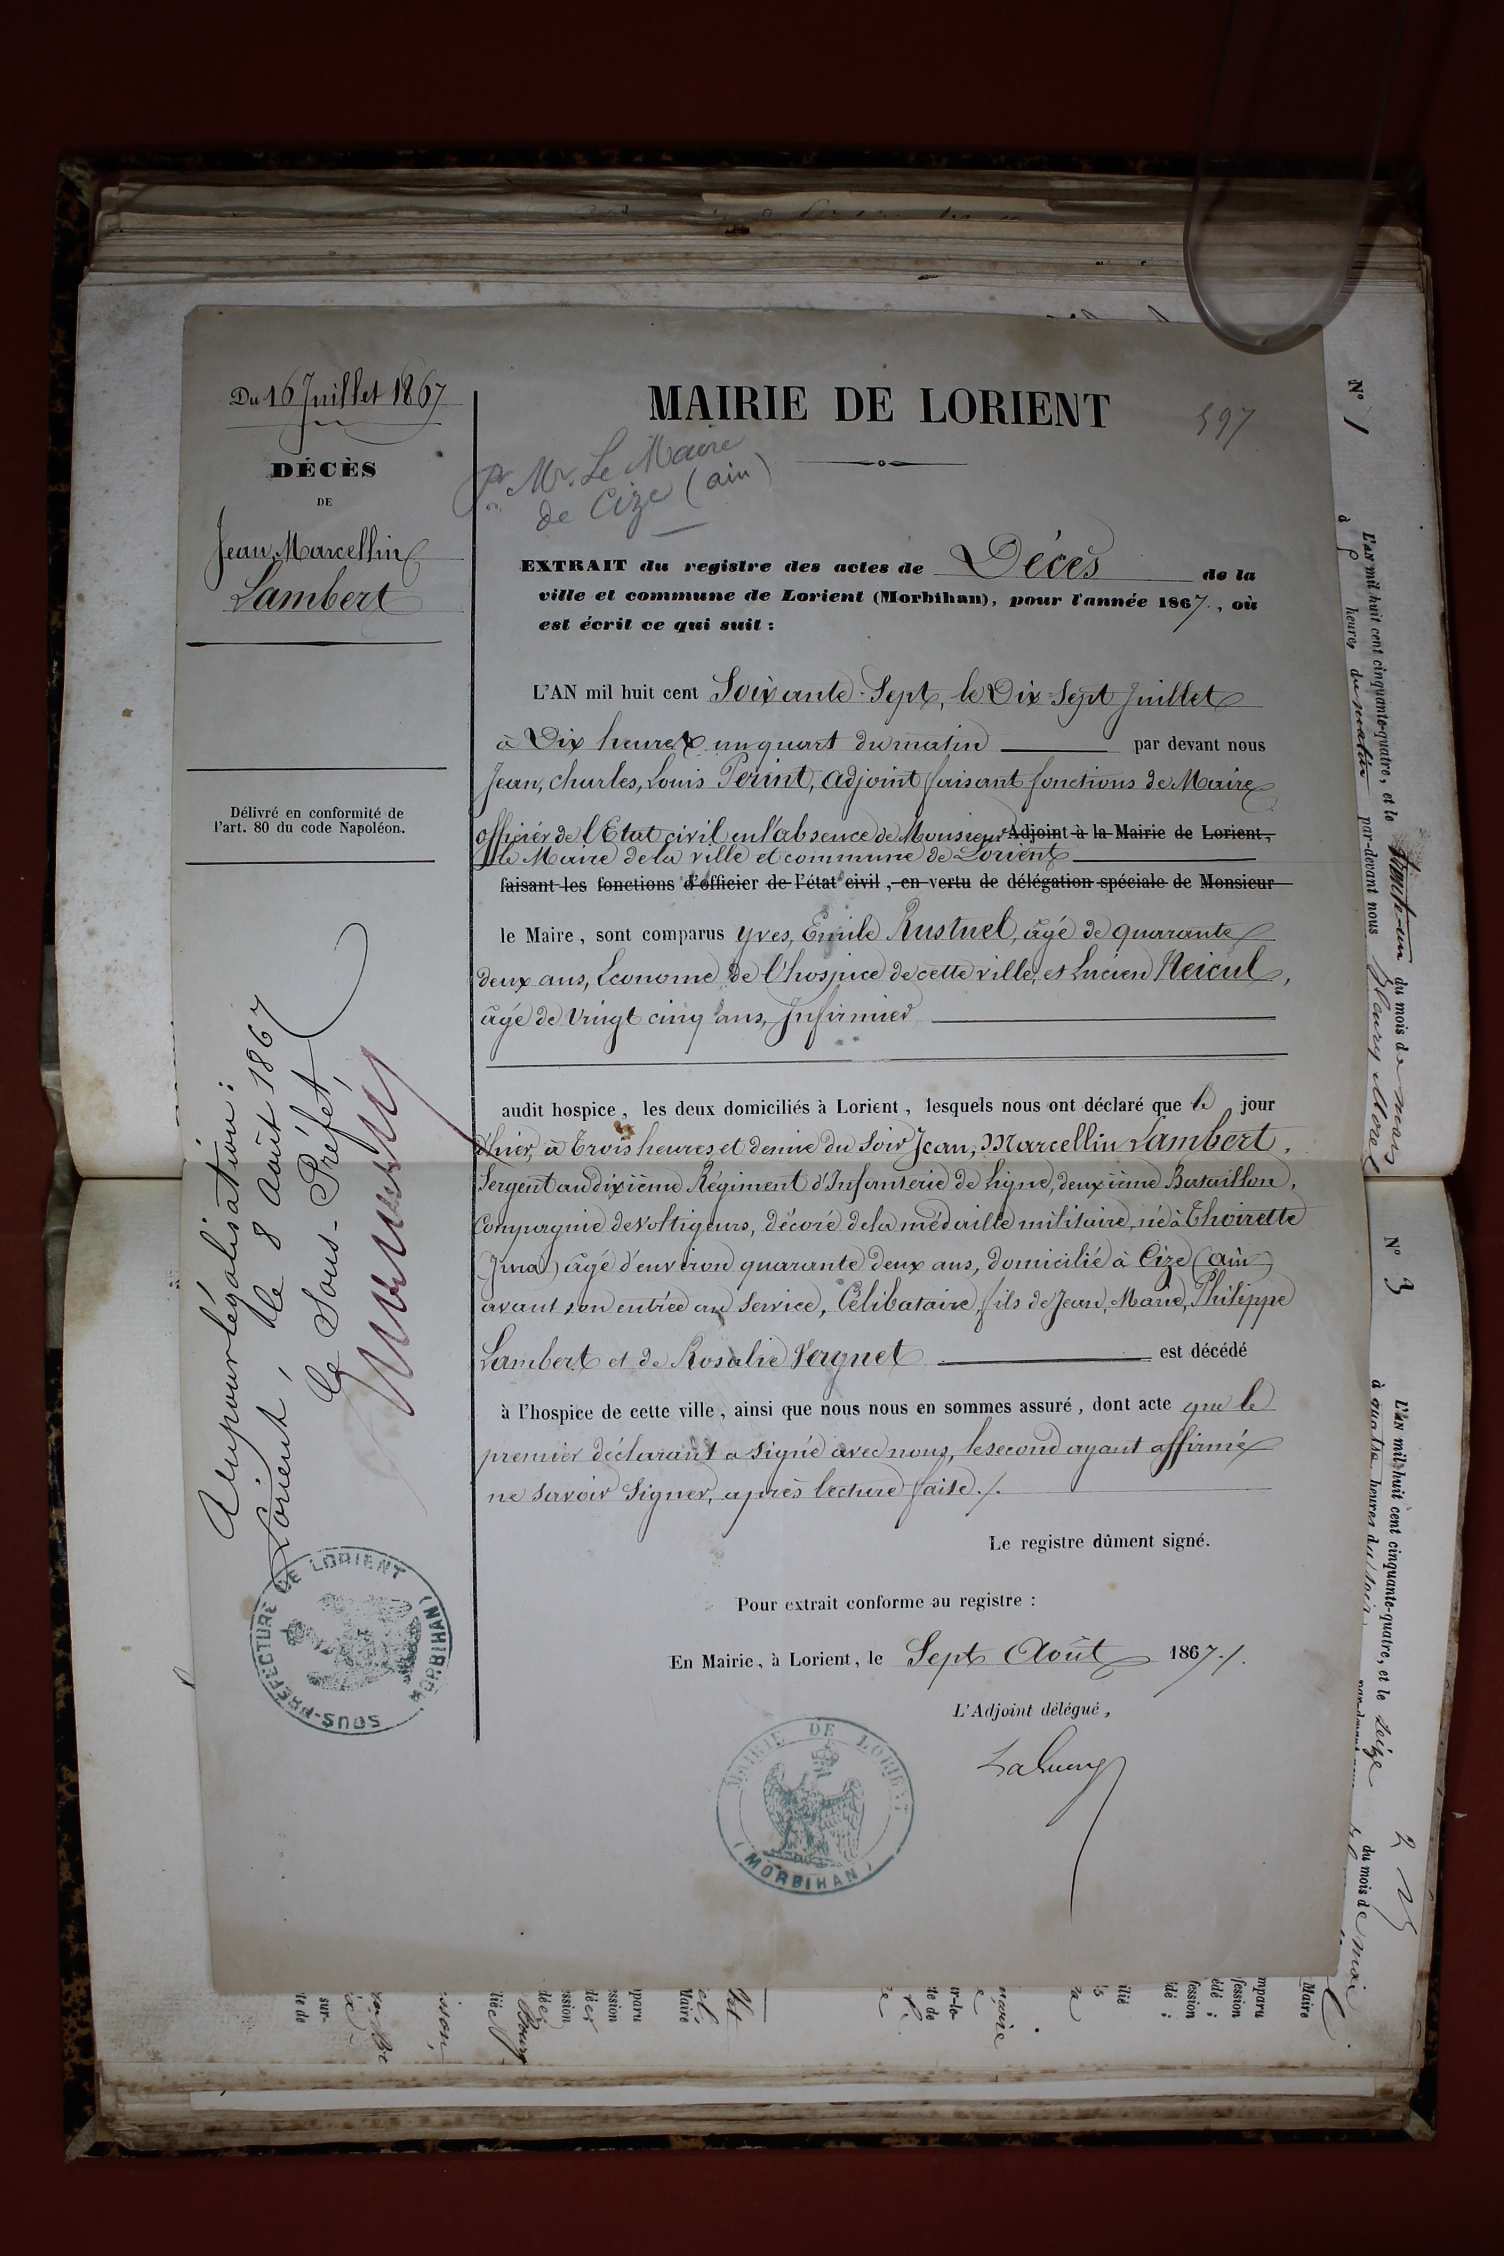 Du 16 Juillet 1867
DÉCÈS
DE
Jean, Marcellin
Lambert
Délivré en conformité de
l'art. 80 du code Napoléon.
Vu pour légalisation :
Lorient, le 8 Août 1867
Le Sous-Préfet,
SOUS-PRÉFECTURE DE LORIENT (MORBIHAN)
MAIRIE DE LORIENT
597
Mr. Le Maire
de Cize (ain)
EXTRAIT du registre des actes de Décès de la
ville et commune de Lorient (Morbihan), pour l'année 1867, où
est écrit ce qui suit :
L'AN mil huit cent Soixante-Sept, le Dix-Sept Juillet
à Dix heures un quart du matin par devant nous
Jean, Charles, Louis Perint, adjoint faisant fonctions de Maire
officier de l'Etat civil en l'absence de Monsieur Adjoint à la Mairie de Lorient,
le Maire de la ville et commune de Lorient
faisant les fonctions d'officier de l'état civil, en vertu de délégation spéciale de Monsieur
le Maire, sont comparus Yves, Emile Rustuel, âgé de quarante
deux ans, Econome de l'hospice de cette ville, et Lucien Neicul,
âgé de Vingt cinq ans, Infirmier
audit hospice, les deux domiciliés à Lorient, lesquels nous ont déclaré que le jour
d'hier, à Trois heures et demie du Soir Jean, Marcellin Lambert,
Sergent au dixième Régiment d'Infanterie de Ligne, deuxième Bataillon,
Compagnie de Voltigeurs, décoré de la médaille militaire, né à Thoirette
(Jura) âgé d'environ quarante deux ans, domicilié à Cize (ain)
avant son entrée au Service, Célibataire, fils de Jean, Marie, Philippe
Lambert et de Rosalie Vergnet est décédé
à l'hospice de cette ville, ainsi que nous nous en sommes assuré, dont acte que le
premier déclarant a signé avec nous, le second ayant affirmé
ne savoir Signer, après lecture faite./.
Le registre dûment signé.
Pour extrait conforme au registre :
En Mairie, à Lorient, le Sept Août 1867./.
L'Adjoint délégué,
MAIRIE DE LORIENT
(MORBIHAN)
N° 1
L'AN mil huit cent cinquante-quatre, et le du mois de mars
à heures du matin par-devant nous
N° 3
L'AN mil huit cent cinquante-quatre, et le seize du mois de mai
à quatre heures du soir